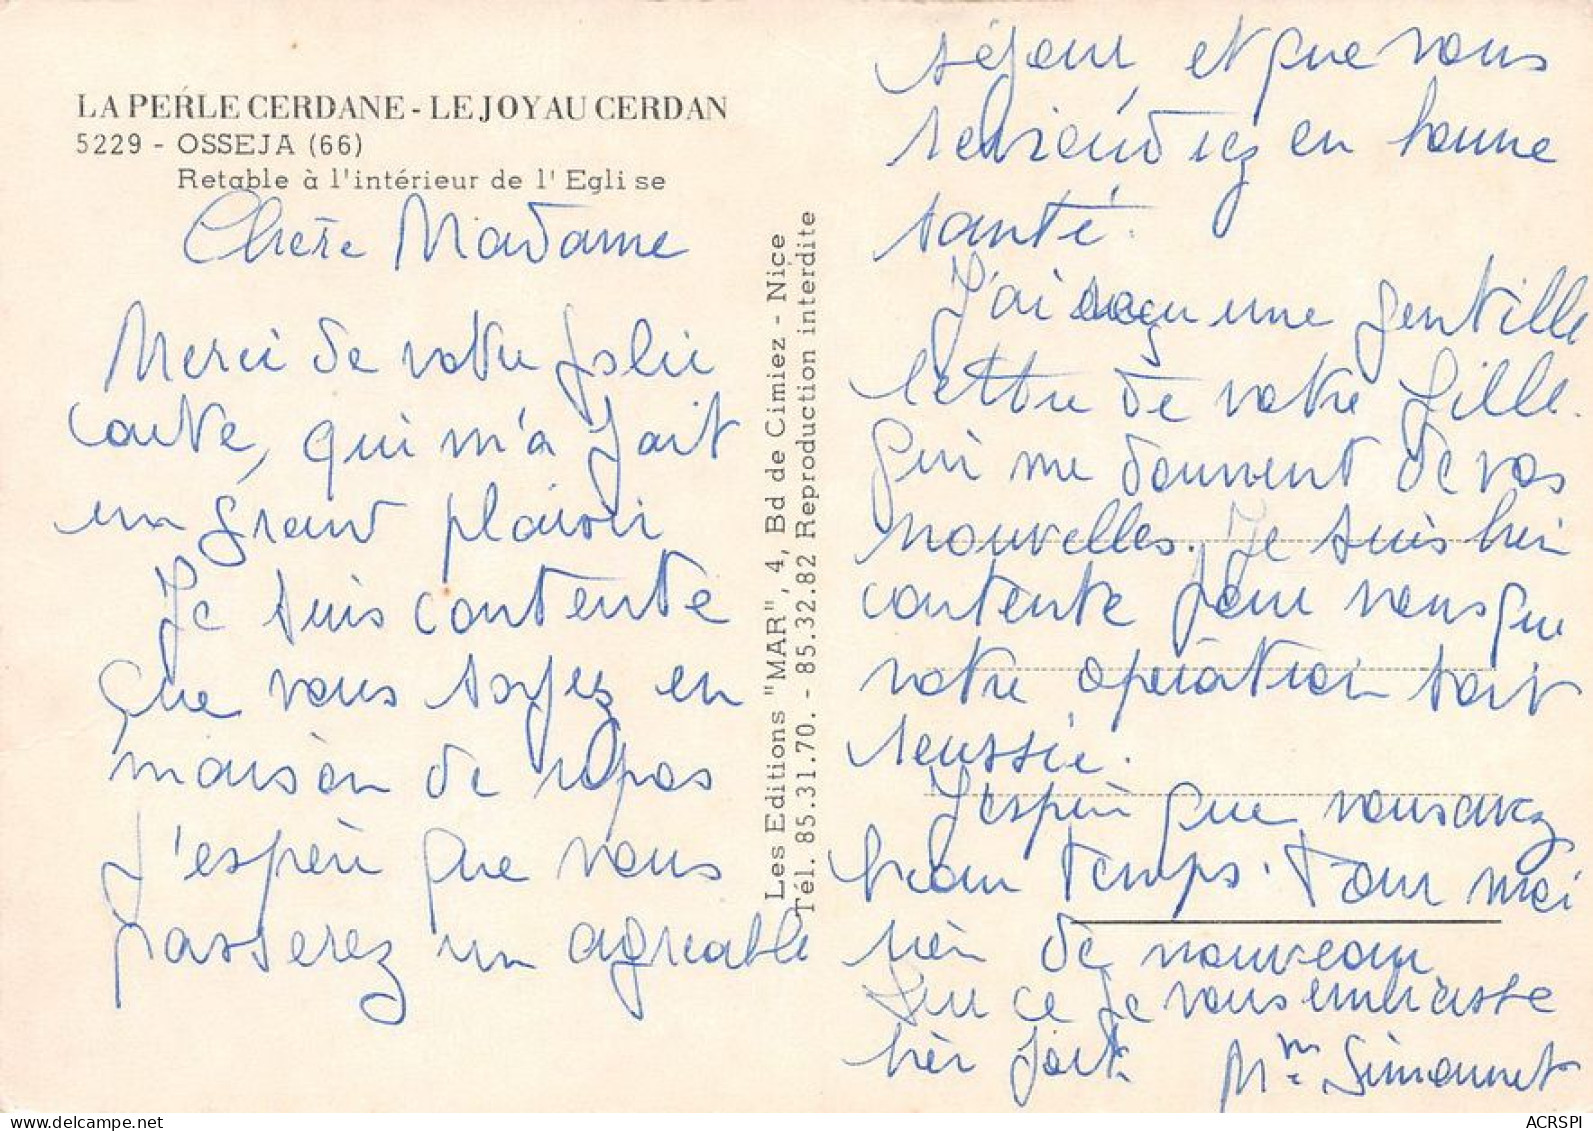 LA PERLE CERDANE - LE JOYAU CERDAN
5229 - OSSEJA (66)
Retable à l'intérieur de l'Eglise
Chère Madame
Merci de votre jolie
carte, qui m'a fait
un grand plaisir
Je suis contente
que vous soyez en
maison de repos
J'espère que vous
passerez un agréable
Les Editions "MAR", 4, Bd de Cimiez - Nice
Tél. 85.31.70. - 85.32.82 Reproduction interdite
séjour, et que vous
reviendrez en bonne
santé.
J'ai reçu une gentille
lettre de votre fille.
qui me donnent de vos
nouvelles. Je suis bien
contente pour vous que
votre opération soit
reussie.
J'espère que vous avez
beau temps. Pour moi
rien de nouveau
Sur ce je vous embrasse
bien fort.
Mme Simonnet
ACRSPI